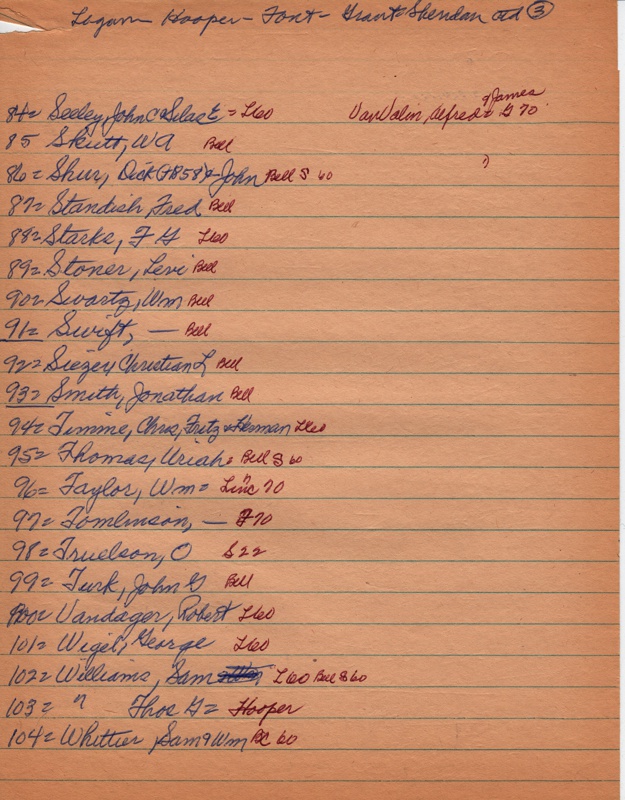 Logan - Hooper - Font - Grant Sheridan Old 3
84= Seeley, John C & Silas E = L60 VanValin, Alfred & James = G 70
85 Skutt, W A Bell
86= Shur, Dick (7858) & John Bell S 60
87= Standish, Fred Bell
88= Starks, F G L60
89= Stoner, Levi Bell
90= Swartz, Wm Bell
91= Swift, — Bell
92= Christian L Bell
93= Smith, Jonathan Bell
94= Timme, Chris, Fritz & Herman L60
95= Thomas, Uriah = Bell S 60
96= Taylor, Wm = Linc 70
97= Tomlinson, — 70
98= Truelson, O S 22
99= Turk, John G Bell
100= Vandager, Robert L60
101= Wigel, George L60
102= Williams, Sam L60 Bell S 60
103= " Thos G = Hooper
104= Whittier, Sam & Wm BC 60